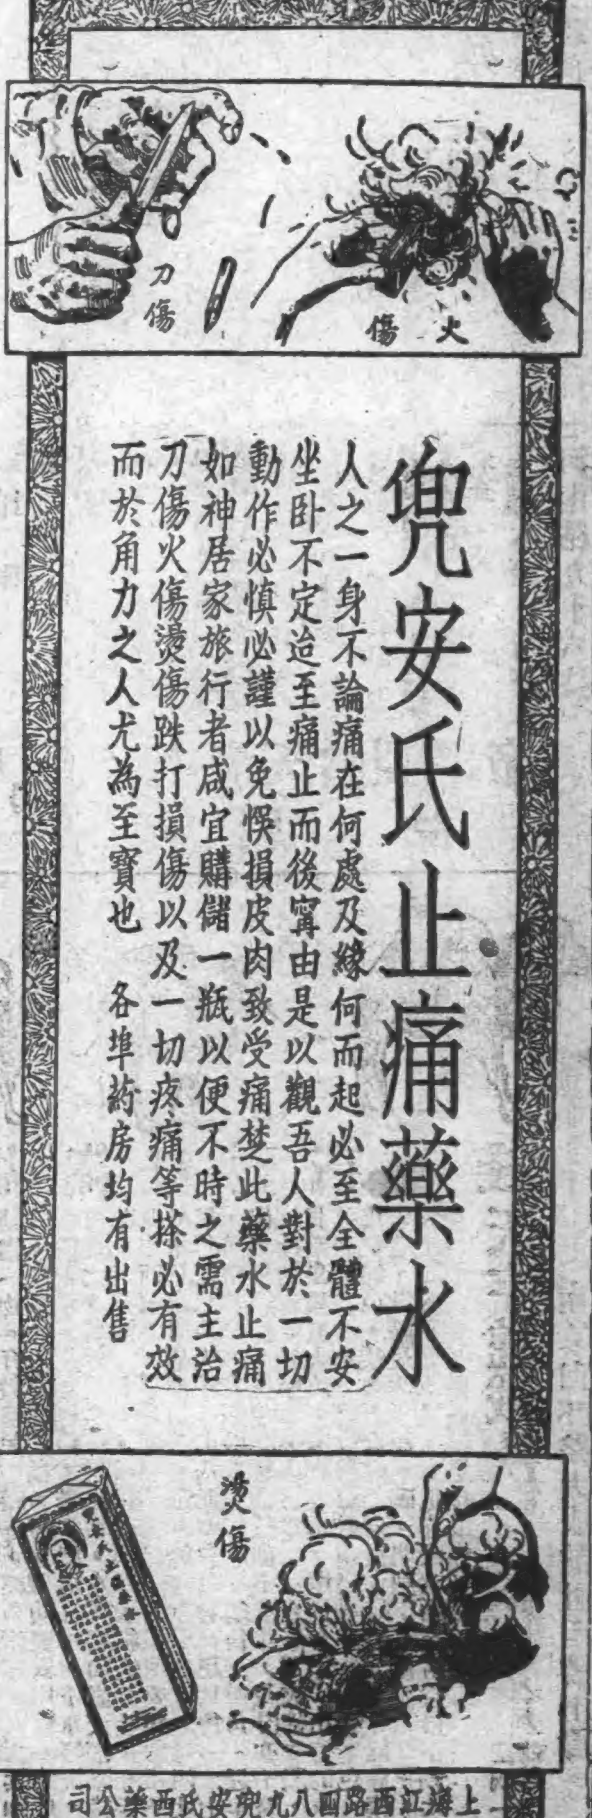 刀傷
火傷
兜安氏止痛藥水
人之一身不論痛在何處及緣何而起必至全體不安
坐卧不定迨至痛止而後甯由是以觀吾人對於一切
動作必慎必謹以免悞損皮肉致受痛楚此藥水止痛
如神居家旅行者咸宜購儲一瓶以便不時之需主治
刀傷火傷燙傷跌打損傷以及一切疼痛等搽必有效
而於角力之人尤為至寶也 各埠葯房均有出售
燙傷
上海江西路四八九兜安氏西藥公司